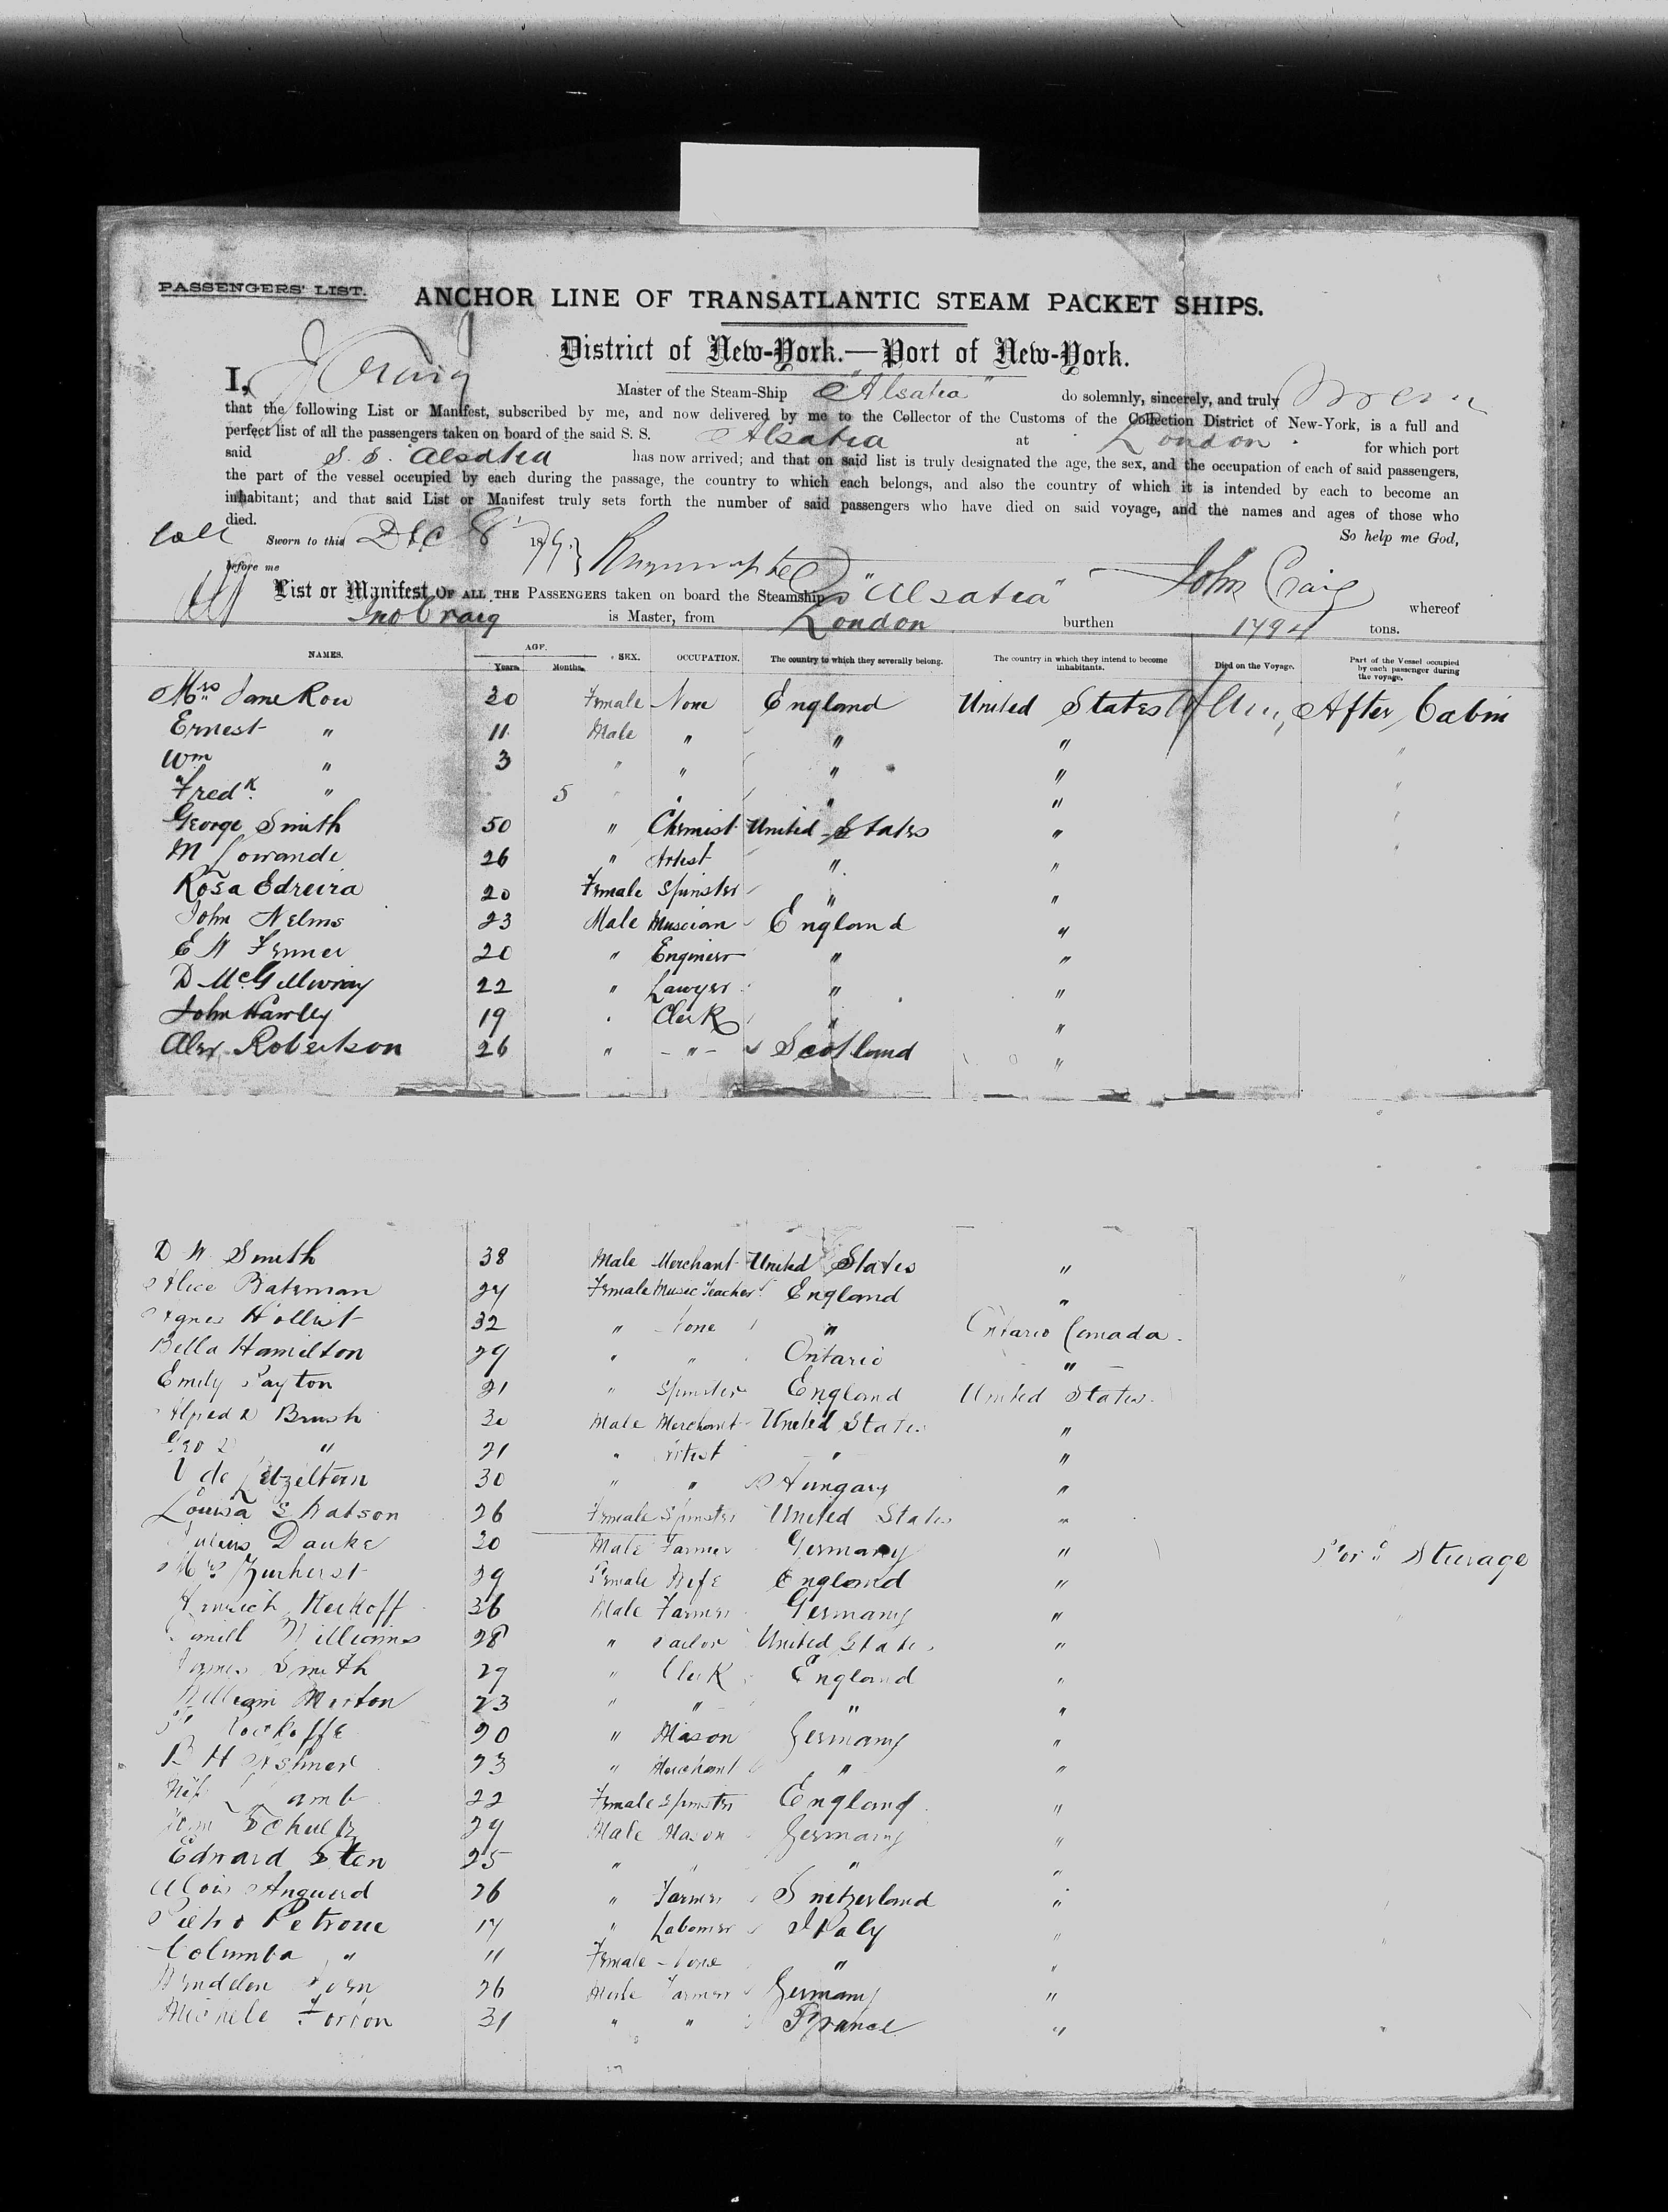 PASSENGERS' LIST.
ANCHOR LINE OF TRANSATLANTIC STEAM PACKET SHIPS.
District of New-York.—Port of New-York.
I, J Craig Master of the Steam-Ship "Alsatia" do solemnly, sincerely, and truly
that the following List or Manifest, subscribed by me, and now delivered by me to the Collector of the Customs of the Collection District of New-York, is a full and
perfect list of all the passengers taken on board of the said S. S. Alsatia at London for which port
said S. S. Alsatia has now arrived; and that on said list is truly designated the age, the sex, and the occupation of each of said passengers,
the part of the vessel occupied by each during the passage, the country to which each belongs, and also the country of which it is intended by each to become an
inhabitant; and that said List or Manifest truly sets forth the number of said passengers who have died on said voyage, and the names and ages of those who
died. So help me God,
Sworn to this Dec 8 1879
before me John Craig
List or Manifest OF ALL THE PASSENGERS taken on board the Steamship "Alsatia" whereof
Jno Craig is Master, from London burthen 1794 tons.
NAMES. AGE. Years. Months. SEX. OCCUPATION. The country to which they severally belong. The country in which they intend to become inhabitants. Died on the Voyage. Part of the Vessel occupied by each passenger during the voyage.
Mrs Jane Row 30 Female None England United States After Cabin
Ernest " 11 Male " " "
Wm " 3 " " " "
Fredk " 5 " " " "
George Smith 50 " Chemist United States "
M Lowande 26 " Artist " "
Rosa Edreira 20 Female Spinster " "
John Nelms 23 Male Muscian England "
E W Fenner 20 " Engineer " "
D McGillivray 22 " Lawyer " "
John Hawley 19 " Clerk " "
Alex Robertson 26 " " Scotland "
D W Smith 38 Male Merchant United States "
Alice Bateman 24 Female Music Teacher England "
Agnes Hollist 32 " None " Ontario Canada
Bella Hamilton 29 " " Ontario "
Emily Payton 21 " Spinster England United States
Alfred D Brush 30 Male Merchant United States "
" 21 " Artist " "
V de 30 " " Hungary "
Louisa S Watson 26 Female Spinster United States "
Julius Dauke 30 Male Farmer Germany " Steerage
Mrs Zurherst 39 Female Wife England "
Heinrich Meikoff 36 Male Farmer Germany "
Williams 28 " Sailor United States "
James Smith 29 " Clerk England "
William Merton 23 " " " "
20 " Mason Germany "
B H 23 " Merchant " "
Lamb 22 Female Spinster England "
Schultz 29 Male Mason Germany "
Edward Sten 25 " " " "
Alois Anguerd 26 " Farmer Switzerland "
Pietro Petrone 17 " Labourer Italy "
Columba " 11 Female None " "
Wendelen 26 Male Farmer Germany "
Michele Forion 31 " " France "